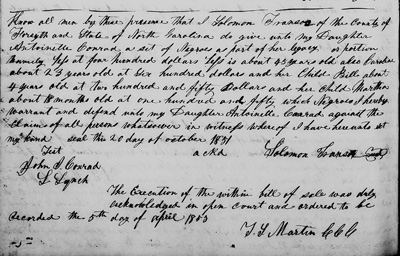 Know all men by these presence that I Solomon Transou of the County of
Forsyth and State of North Carolina do give unto my Daughter
Antoinette Conrad a set of Negroes a part of her legacy or portion
at four hundred dollars is about 45 years old also Caroline
about 23 years old at Six hundred dollars and her Child Bill about
4 years old at two hundred and fifty Dollars and her Child Martha
about 18 months old at one hundred and fifty, which Negroes I hereby
warrant and defend unto my Daughter Antoinette Conrad against the
Claims of all persons whatsoever in witness whereof I have here unto set
my hand seal this 20 day of October 1851
Test Solomon Transou
John P. Conrad
L Lynch
The Execution of the within bill of sale was duly
acknowledged in open court and ordered to be
recorded the 5th day of April 1853